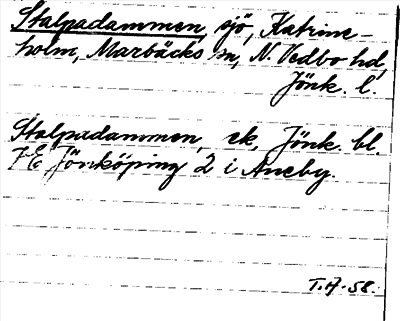 Stalpadammen, sjö, Katrine-
holm, Marbäcks sn, N. Vedbo hd,
Jönk. l.
Stalpadammen, ek, Jönk. bl.
7E Jönköping 2 i Aneby.
T.A. 58.